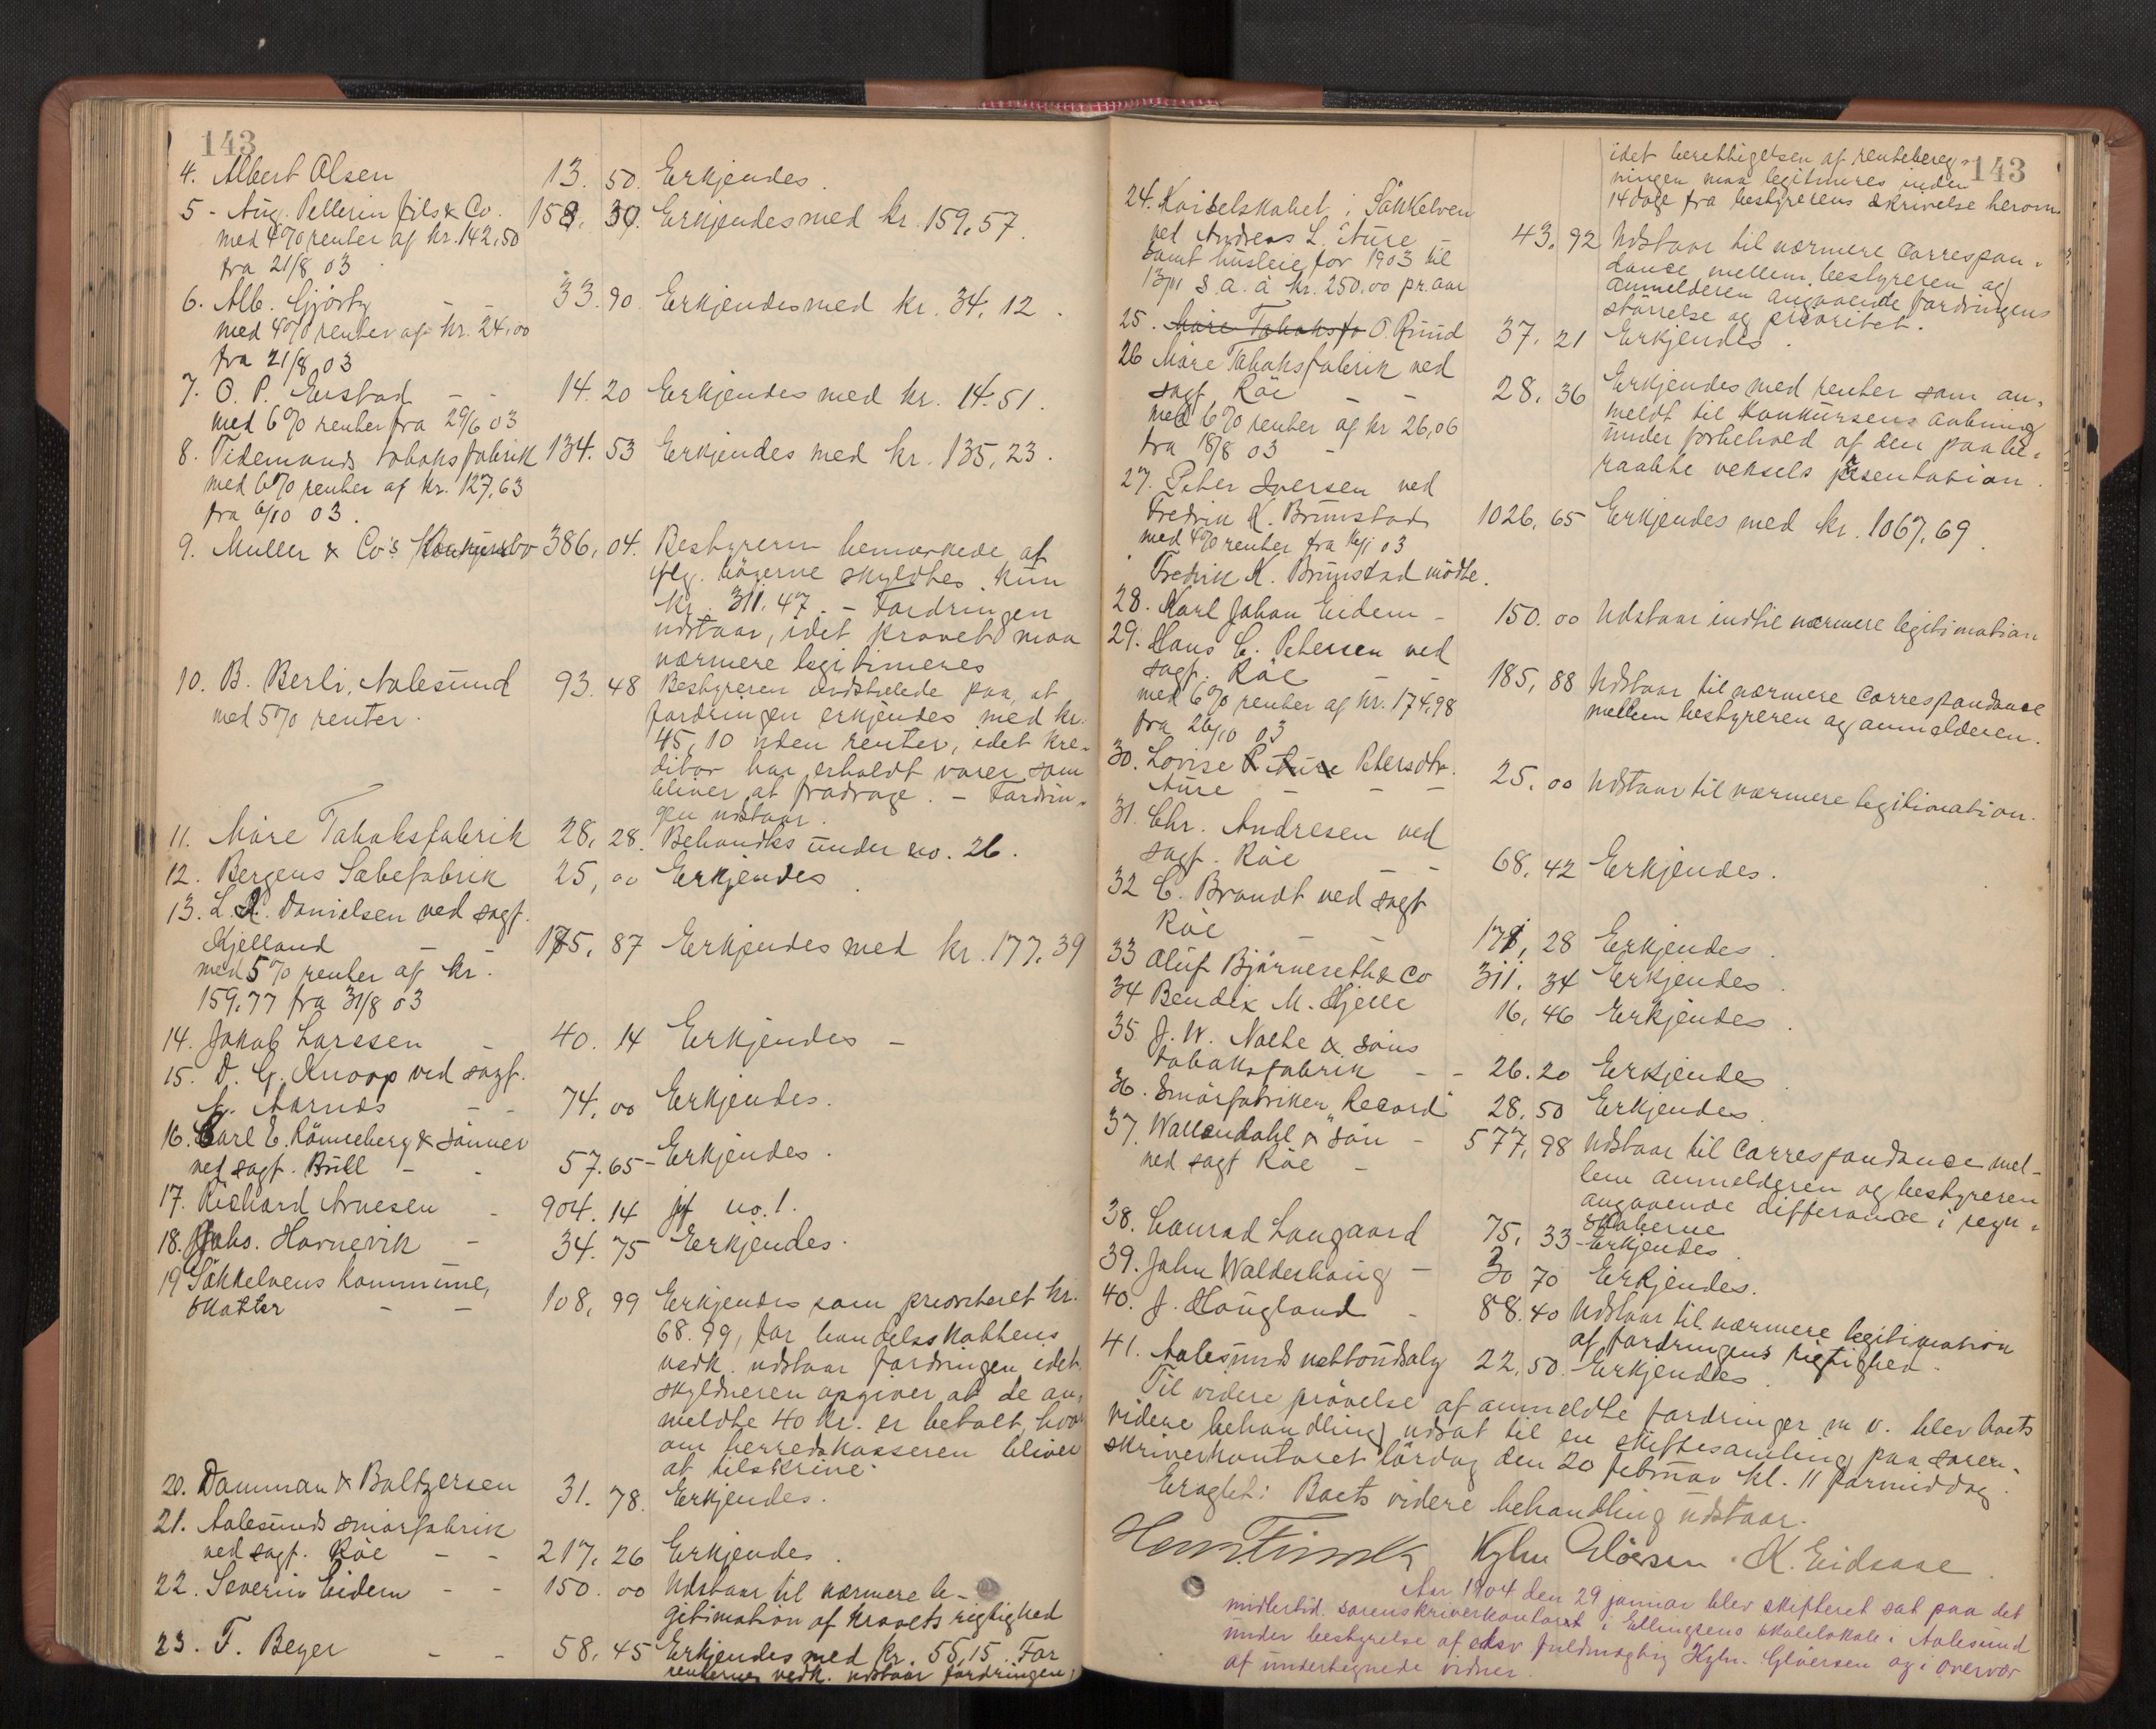 143
4. Albert Olsen 13. 50. Erkjendes.
5 - Aug. Pellerin fils & Co. 158. 30. Erkjendes med kr. 159,57.
med 4% renter af kr. 142,50
fra 21/8 03
6. Alb. Gjørtz - - 33.90 Erkjendes med kr. 34,12.
med 4% renter af kr. 24,00
fra 21/8 03
7. O. P. Enstad - - 14.20 Erkjendes med kr. 14.51.
med 6% renter fra 29/6 03
8. Tidemands tobaksfabrik 134.53 Erkjendes med kr. 135,23.
med 6% renter af kr. 127,63
fra 6/10 03.
9. Muller & Co's Konkursbo 386,04. Bestyreren bemærkede at
ifølg. bøgerne skyldtes kun
kr. 311.47. - Fordringen
udstaar, idet kravet maa
nærmere legitimeres
10. B. Berli, Aalesund 93.48 Bestyreren indstillede paa, at
med 5% renter. fordringen erkjendes med kr.
45,10 uden renter, idet kre-
ditor har erholdt varer som
bliver at fradrage. - Fordrin-
gen udstaar.
11. Møre Tobaksfabrik 28,28. Behandles under no. 26.
12. Bergens Sæbefabrik 25,00 Erkjendes.
13. L. K. Danielsen ved sagf.
Kjelland - - 175,87 Erkjendes med kr. 177.39
med 5% renter af kr.
159,77 fra 31/8 03
14. Jakob Larssen - 40.14 Erkjendes -
15. D. G. Knoop ved sagf.
A. Aarnæs - - 74,00 Erkjendes.
16. Carl E. Rønneberg & Sønner
ved sagf. Bull - - 57.65 - Erkjendes.
17. Richard Arnesen - 904.14 jf no. 1.
18. Johs. Hovnevik - 34.75 Erkjendes.
19 Søkkelvens kommune,
skatter - - 108,99 Erkjendes som prioriteret kr.
68.99, for handelsskattens
vedk. udstaar fordringen idet
skyldneren opgiver at de an-
meldte 40 kr. er betalt, hvor
om herredskasseren bliver
at tilskrive.
20. Damman & Baltzersen 31.78. Erkjendes.
21. Aalesunds smørfabrik
ved sagf. Röe - - 217,26 Erkjendes.
22. Severin Eidem - - 150.00 Udstaar til nærmere le-
gitimation af kravets rigtighed
23. F. Beyer - - 58,45 Erkjendes med kr. 55,15. For
renternes vedk. udstaar fordringen,
143
idet berettigelsen af rentebereg-
ningen maa legitimeres inden
14 dage fra bestyrerens skrivelse herom
24. Kaibelskabet i Søkkelven
ved Andreas L. Aure - 43,92 Udstaar til nærmere correspon-
samt husleie for 1903 til dance mellem bestyreren og
13/11 s. a. à kr. 250.00 pr. aar anmelderen angaaende fordringens
størrelse og prioritet.
25. Møre Tobaksfa O. Rund 37,21 Erkjendes.
26 Møre Tobaksfabrik ved
sagf. Röe - - 28,36 Erkjendes med renter som an-
med 6% renter af kr 26,06 meldt til konkursens aabning
fra 18/8 03 - under forbehold af den paabe-
raabte veksels præsentation.
27. Peter Iversen ved
Fredrik K. Brunstad 1026,65 Erkjendes med kr. 1067,69.
med 4% renter fra 16/1 03
Fredrik K. Brunstad mødte.
28. Karl Johan Eidem - 150.00 Udstaar indtil nærmere legitimation
29. Hans C. Petersen ved
sagf. Röe - - 185,88 Udstaar til nærmere correspondance
med 6% renter af kr. 174,98 mellem bestyreren og anmelderen.
fra 26/10 03
30. Lovise P. Aure Petersdtr.
Aure - - - 25.00 Udstaar til nærmere legitimation.
31. Chr. Andresen ved
sagf. Röe - 68,42 Erkjendes.
32 C. Brandt ved sagf
Röe - - 171,28 Erkjendes.
33 Oluf Bjørneseth & Co 311.34 Erkjendes.
34 Bendix M. Hjelle 16,46 Erkjendes.
35. J. W. Nolte & Søns
tobaksfabrik - - 26.20 Erkjendes.
36. Smørfabriken "Record" 28,50 Erkjendes.
37. Wallendahl & Søn - 577,98 Udstaar til Correspondance mel-
ved sagf Röe - lem anmelderen og bestyreren
angaaende differance i regn-
skaberne
38. Conrad Langaard 75,33 - Erkjendes.
39. John Walderhaug - 30 70 Erkjendes.
40. J. Haugland - 88.40 Udstaar til nærmere legitimation
af fordringens rigtighed.
41. Aalesunds nettoudsalg 22,50. Erkjendes.
Til videre prøvelse af anmeldte fordringer m. v. blev boets
videre behandling udsat til en skiftesamling paa soren-
skriverkontoret lørdag den 20 februar kl. 11 formiddag.
Eragtet: Boets videre behandling udstaar.
Hans Finck Hylm Gløersen. K. Eidsaae
Aar 1904 den 29 januar blev skifteret sat paa det
midlertid. sorenskriverkontoret i Ellingsens skolelokale i Aalesund
under bestyrelse af edsv fuldmægtig Hylm. Gløersen og i overvær
af undertegnede vidner.